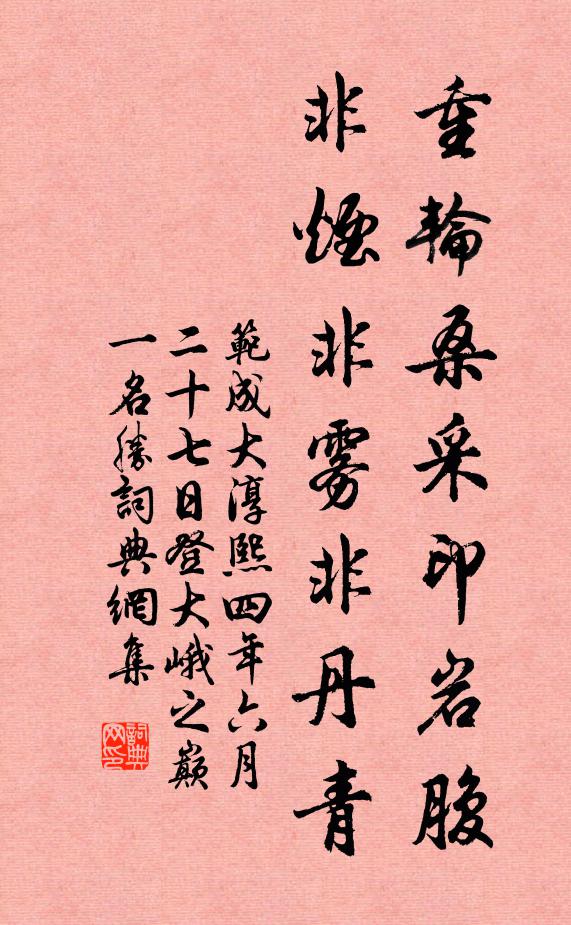 重輪桑采印岩腹
非煙非雾非丹青
範成大淳熙四年六月
二十七日登大峨之巔
一名勝詞典網集
詞典
网印